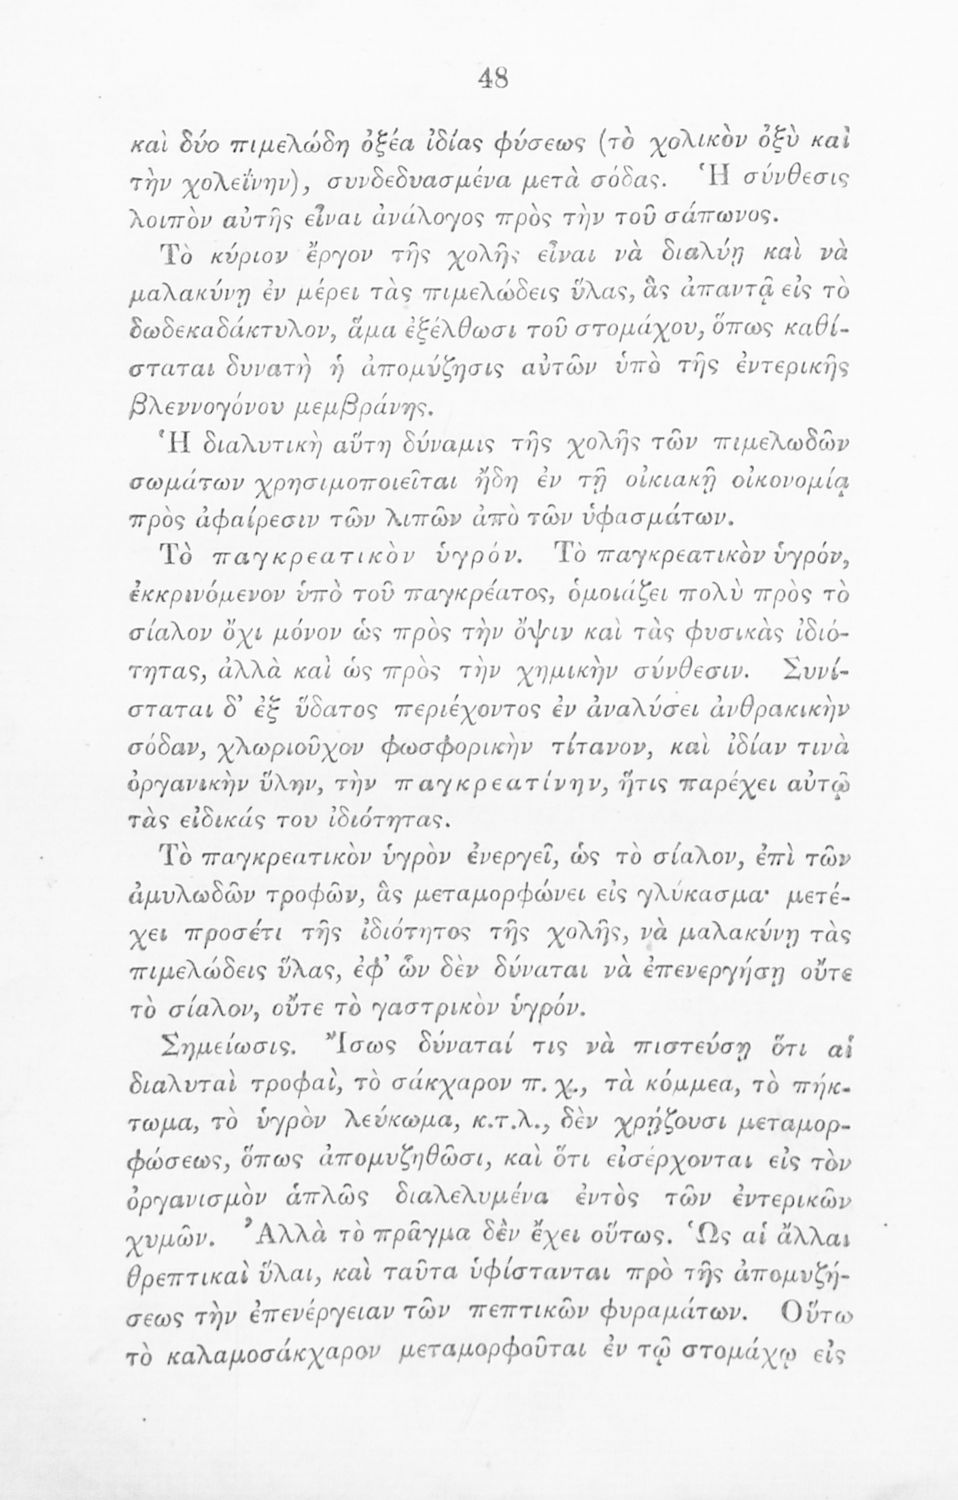 48
καὶ δύο πιμελώδη ὀξέα ἰδίας φύσεως (τὸ χολικὸν ὀξὺ καὶ
τὴν χολεΐνην), συνδεδυασμένα μετὰ σόδας. Ἡ σύνθεσις
λοιπὸν αὐτῆς εἶναι ἀνάλογος πρὸς τὴν τοῦ σάπωνος.
Τὸ κύριον ἔργον τῆς χολῆς εἶναι νὰ διαλύῃ καὶ νὰ
μαλακύνῃ ἐν μέρει τὰς πιμελώδεις ὕλας, ἃς ἀπαντᾷ εἰς τὸ
δωδεκαδάκτυλον, ἅμα ἐξέλθωσι τοῦ στομάχου, ὅπως καθί-
σταται δυνατὴ ἡ ἀπομύζησις αὐτῶν ὑπὸ τῆς ἐντερικῆς
βλεννογόνου μεμβράνης.
Ἡ διαλυτικὴ αὕτη δύναμις τῆς χολῆς τῶν πιμελωδῶν
σωμάτων χρησιμοποιεῖται ἤδη ἐν τῇ οἰκιακῇ οἰκονομίᾳ
πρὸς ἀφαίρεσιν τῶν λιπῶν ἀπὸ τῶν ὑφασμάτων.
Τὸ παγκρεατικὸν ὑγρόν. Τὸ παγκρεατικὸν ὑγρόν,
ἐκκρινόμενον ὑπὸ τοῦ παγκρέατος, ὁμοιάζει πολὺ πρὸς τὸ
σίαλον ὄχι μόνον ὡς πρὸς τὴν ὄψιν καὶ τὰς φυσικὰς ἰδιό-
τητας, ἀλλὰ καὶ ὡς πρὸς τὴν χημικὴν σύνθεσιν. Συνί-
σταται δ’ ἐξ ὕδατος περιέχοντος ἐν ἀναλύσει ἀνθρακικὴν
σόδαν, χλωριοῦχον φωσφορικὴν τίτανον, καὶ ἰδίαν τινὰ
ὀργανικὴν ὕλην, τὴν παγκρεατίνην, ἥτις παρέχει αὐτῷ
τὰς εἰδικάς του ἰδιότητας.
Τὸ παγκρεατικὸν ὑγρὸν ἐνεργεῖ, ὡς τὸ σίαλον, ἐπὶ τῶν
ἀμυλωδῶν τροφῶν, ἃς μεταμορφώνει εἰς γλύκασμα· μετέ-
χει προσέτι τῆς ἰδιότητος τῆς χολῆς, νὰ μαλακύνῃ τὰς
πιμελώδεις ὕλας, ἐφ’ ὧν δὲν δύναται νὰ ἐπενεργήσῃ οὔτε
τὸ σίαλον, οὔτε τὸ γαστρικὸν ὑγρόν.
Σημείωσις. Ἴσως δύναταί τις νὰ πιστεύσῃ ὅτι αἱ
διαλυταὶ τροφαὶ, τὸ σάκχαρον π. χ., τὰ κόμμεα, τὸ πήκ-
τωμα, τὸ ὑγρὸν λεύκωμα, κ.τ.λ., δὲν χρῄζουσι μεταμορ-
φώσεως, ὅπως ἀπομυζηθῶσι, καὶ ὅτι εἰσέρχονται εἰς τὸν
ὀργανισμὸν ἁπλῶς διαλελυμένα ἐντὸς τῶν ἐντερικῶν
χυμῶν. Ἀλλὰ τὸ πρᾶγμα δὲν ἔχει οὕτως. Ὡς αἱ ἄλλαι
θρεπτικαὶ ὕλαι, καὶ ταῦτα ὑφίστανται πρὸ τῆς ἀπομυζή-
σεως τὴν ἐπενέργειαν τῶν πεπτικῶν φυραμάτων. Οὕτω
τὸ καλαμοσάκχαρον μεταμορφοῦται ἐν τῷ στομάχῳ εἰς